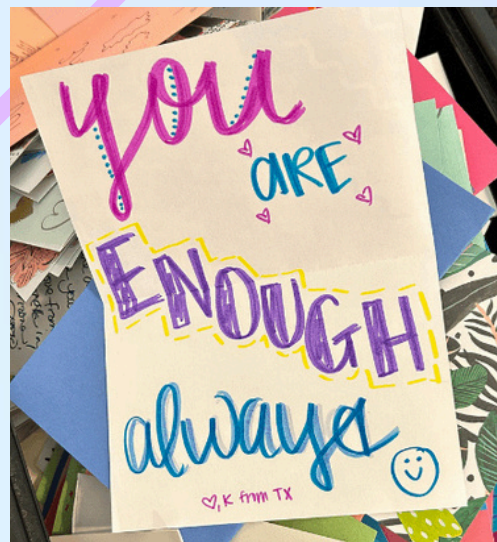 you
ARE
ENOUGH
always
♡, K from TX